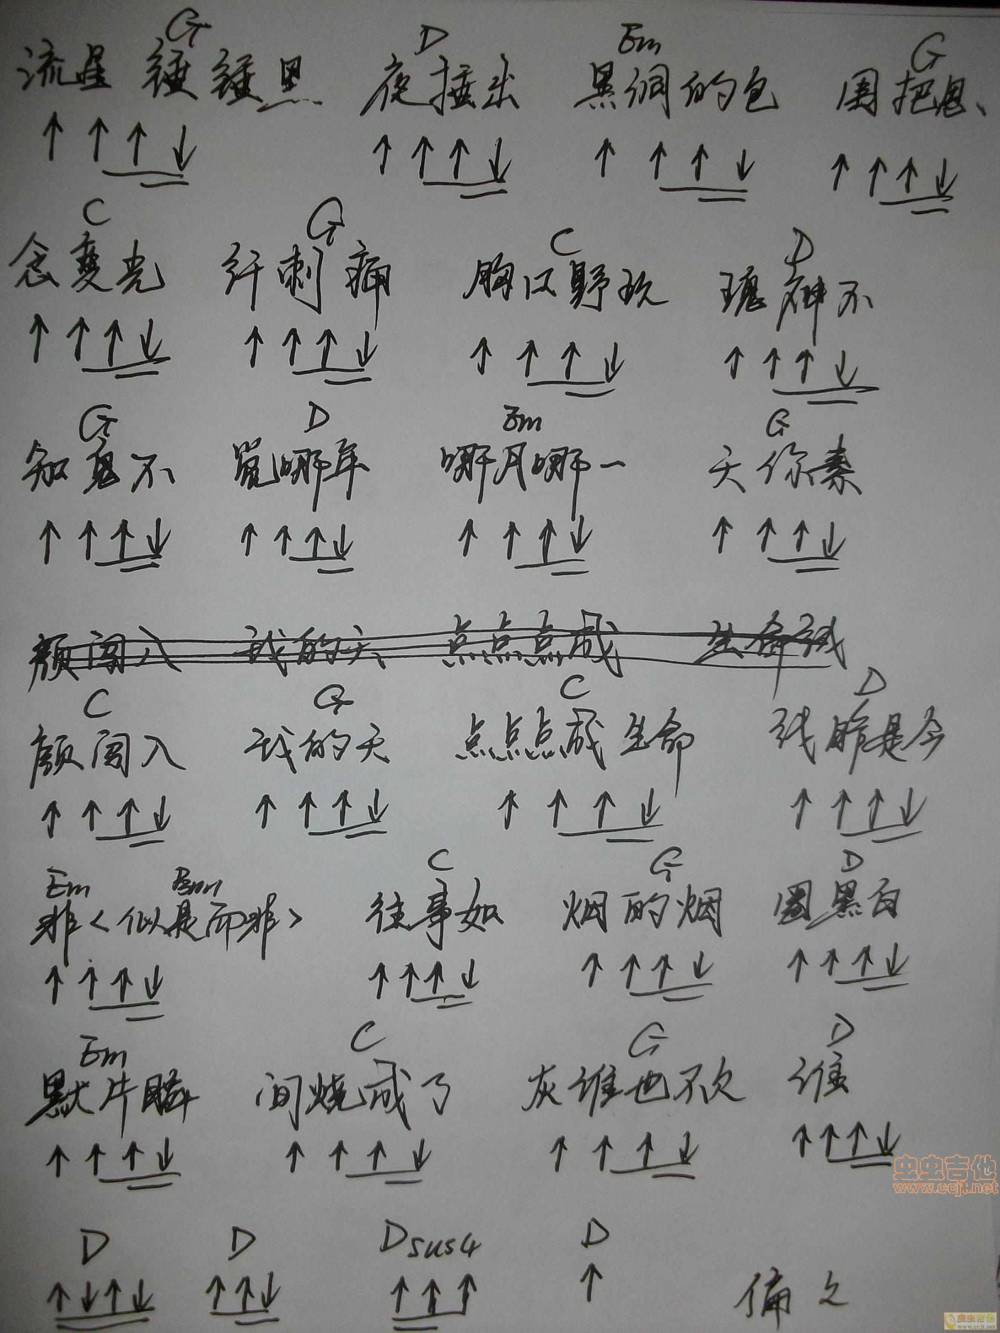 G D Em G
流星 锤锤黑 夜捶出 黑洞的包 围把思、
C G C D
念变光 纤刺痛 胸口野玫 瑰神不
G D Em G
知鬼不 觉哪年 哪月哪一 天你素
颜闯入 我的天 点点点成 生命
C G C D
颜闯入 我的天 点点点成生命 线昨是今
Em Bm C G D
非<似是而非> 往事如 烟的烟 圈黑白
Em C G D
默片瞬 间烧成了 灰谁也不欠 谁
D D Dsus4 D
偏
虫虫吉他
www.ccjt.net